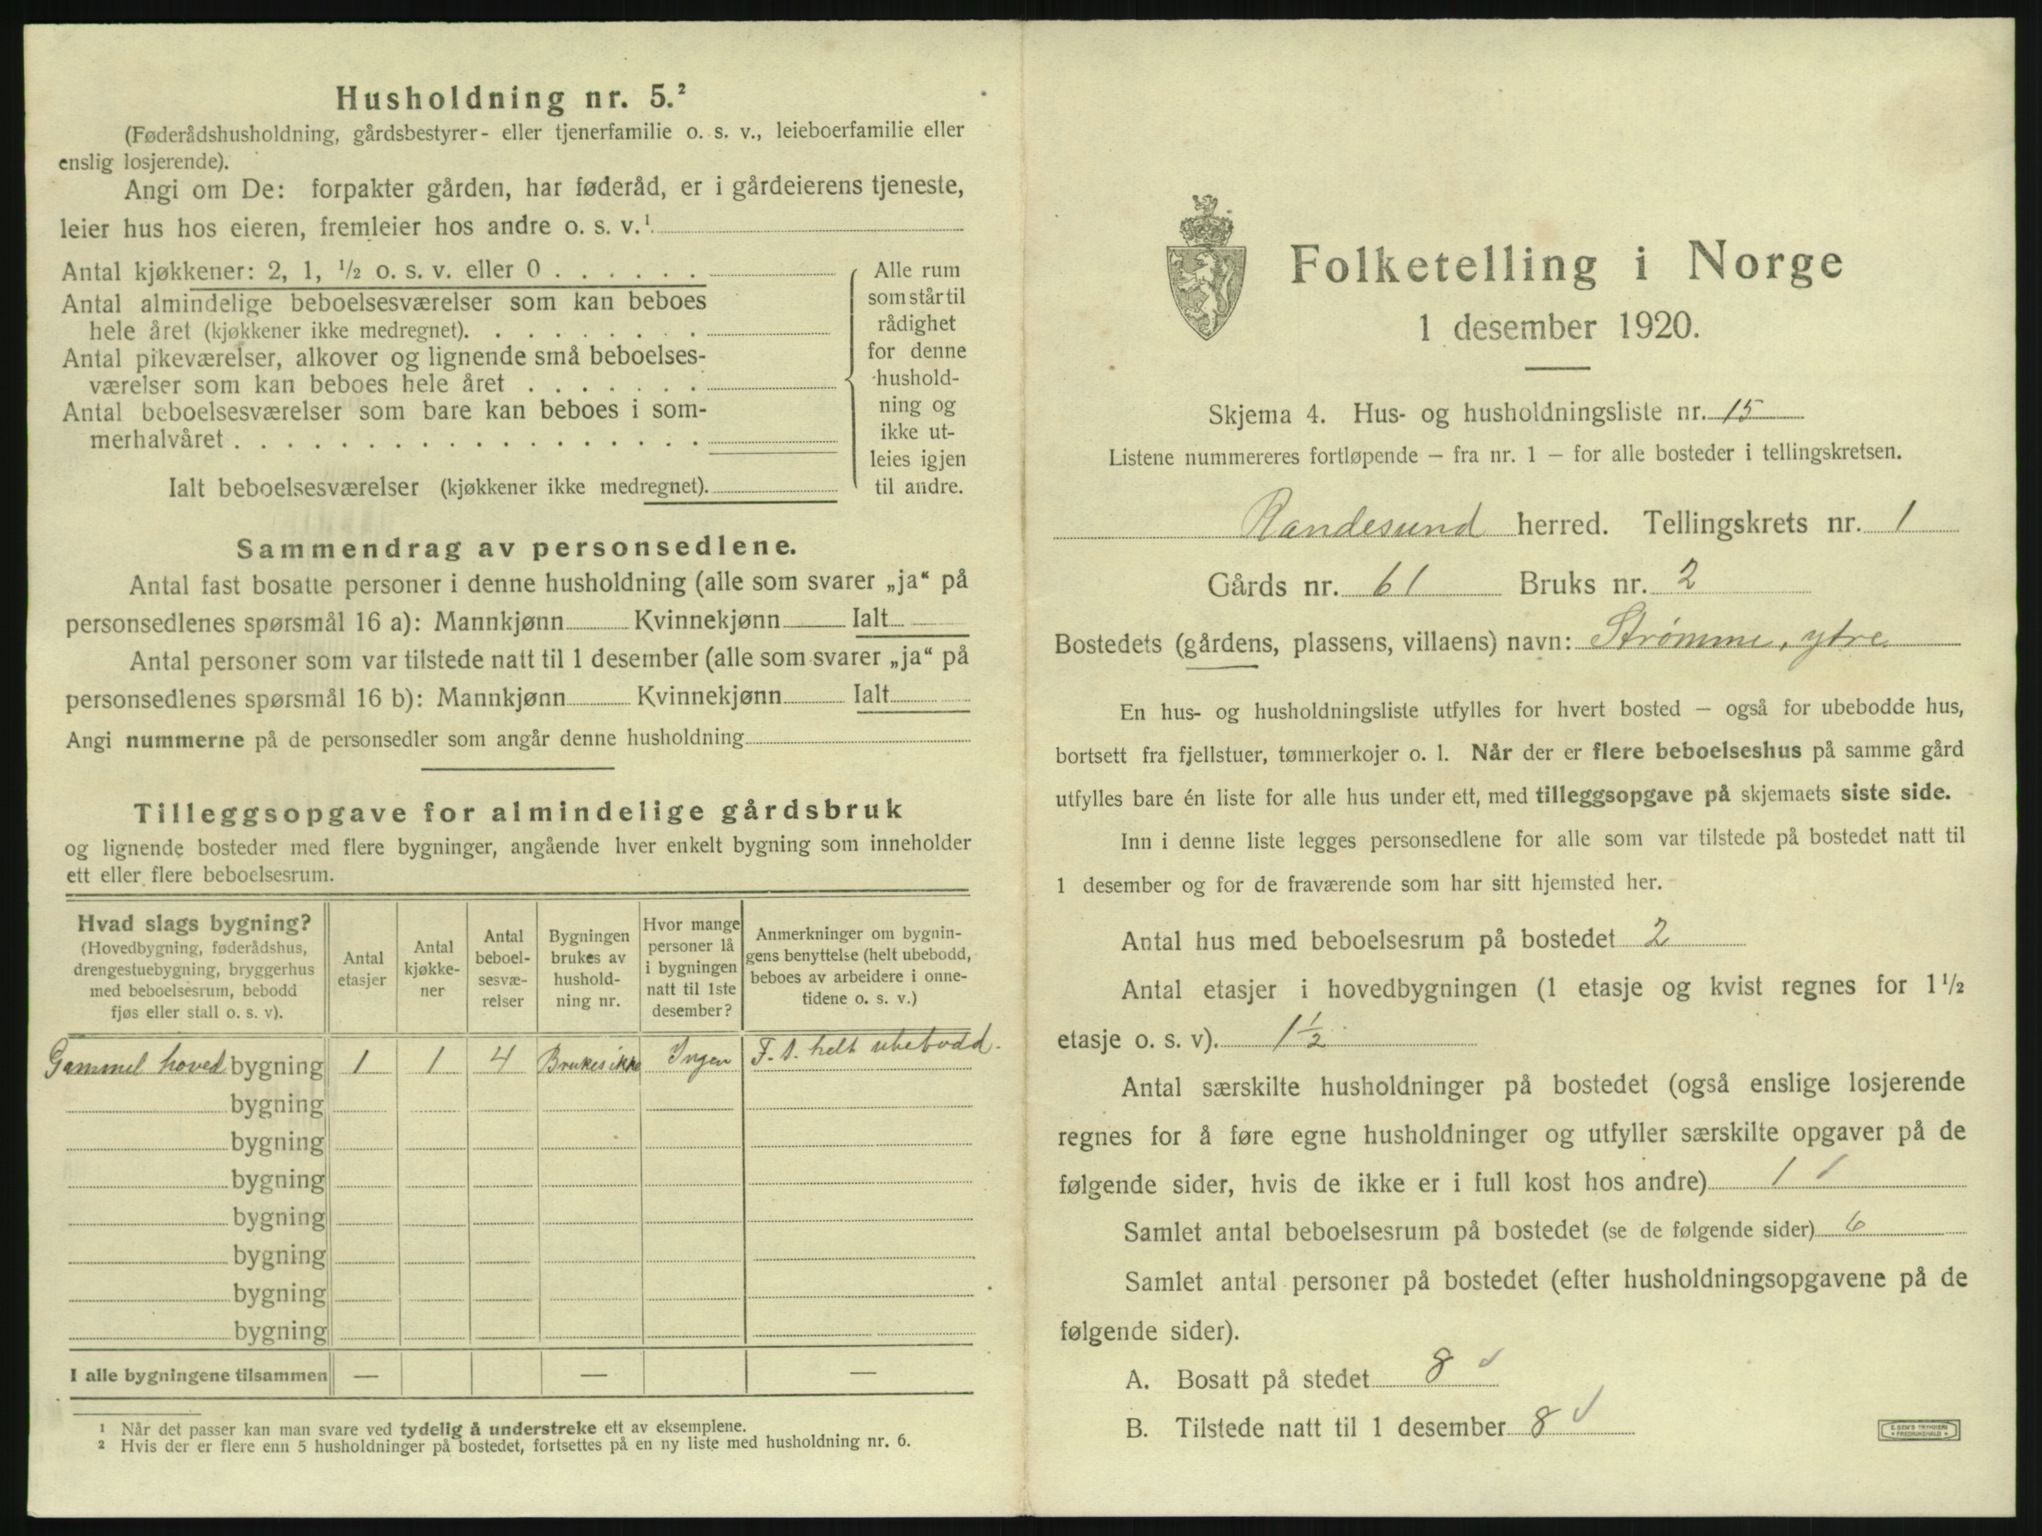 Husholdning nr. 5.²
(Føderådshusholdning, gårdsbestyrer- eller tjenerfamilie o. s. v., leieboerfamilie eller
enslig losjerende).
Angi om De: forpakter gården, har føderåd, er i gårdeierens tjeneste,
leier hus hos eieren, fremleier hos andre o. s. v.¹
Antal kjøkkener: 2, 1, ½ o. s. v. eller 0 . . . . . .
Antal almindelige beboelsesværelser som kan beboes
hele året (kjøkkener ikke medregnet). . . . . . . . .
Antal pikeværelser, alkover og lignende små beboelses-
værelser som kan beboes hele året . . . . . . .
Antal beboelsesværelser som bare kan beboes i som-
merhalvåret . . . . . . . . . . . . . . . . . .
Ialt beboelsesværelser (kjøkkener ikke medregnet).
Alle rum
som står til
rådighet
for denne
hushold-
ning og
ikke ut-
leies igjen
til andre.
Sammendrag av personsedlene.
Antal fast bosatte personer i denne husholdning (alle som svarer „ja“ på
personsedlenes spørsmål 16 a): Mannkjønn Kvinnekjønn Ialt
Antal personer som var tilstede natt til 1 desember (alle som svarer „ja“ på
personsedlenes spørsmål 16 b): Mannkjønn Kvinnekjønn Ialt
Angi nummerne på de personsedler som angår denne husholdning
Tilleggsopgave for almindelige gårdsbruk
og lignende bosteder med flere bygninger, angående hver enkelt bygning som inneholder
ett eller flere beboelsesrum.
Hvad slags bygning?
(Hovedbygning, føderådshus,
drengestuebygning, bryggerhus
med beboelsesrum, bebodd
fjøs eller stall o. s. v).
Antal
etasjer
Antal
kjøkke-
ner
Antal
beboel-
sesvæ-
relser
Bygningen
brukes av
hushold-
ning nr.
Hvor mange
personer lå
i bygningen
natt til 1ste
desember?
Anmerkninger om bygnin-
gens benyttelse (helt ubebodd,
beboes av arbeidere i onne-
tidene o. s. v.)
Gammel hoved bygning 1 1 4 Brukes ikke Ingen F. t. helt ubebodd.
bygning
bygning
bygning
bygning
bygning
bygning
bygning
I alle bygningene tilsammen — — —
¹ Når det passer kan man svare ved tydelig å understreke ett av eksemplene.
² Hvis der er flere enn 5 husholdninger på bostedet, fortsettes på en ny liste med husholdning nr. 6.
Folketelling i Norge
1 desember 1920.
Skjema 4. Hus- og husholdningsliste nr. 15
Listene nummereres fortløpende — fra nr. 1 — for alle bosteder i tellingskretsen.
Randesund herred. Tellingskrets nr. 1
Gårds nr. 61 Bruks nr. 2
Bostedets (gårdens, plassens, villaens) navn: Strømme, ytre
En hus- og husholdningsliste utfylles for hvert bosted — også for ubebodde hus,
bortsett fra fjellstuer, tømmerkojer o. l. Når der er flere beboelseshus på samme gård
utfylles bare én liste for alle hus under ett, med tilleggsopgave på skjemaets siste side.
Inn i denne liste legges personsedlene for alle som var tilstede på bostedet natt til
1 desember og for de fraværende som har sitt hjemsted her.
Antal hus med beboelsesrum på bostedet 2
Antal etasjer i hovedbygningen (1 etasje og kvist regnes for 1½
etasje o. s. v). 1½
Antal særskilte husholdninger på bostedet (også enslige losjerende
regnes for å føre egne husholdninger og utfyller særskilte opgaver på de
følgende sider, hvis de ikke er i full kost hos andre) 1 ✓
Samlet antal beboelsesrum på bostedet (se de følgende sider) 6
Samlet antal personer på bostedet (efter husholdningsopgavene på de
følgende sider).
A. Bosatt på stedet 8 ✓
B. Tilstede natt til 1 desember 8 ✓